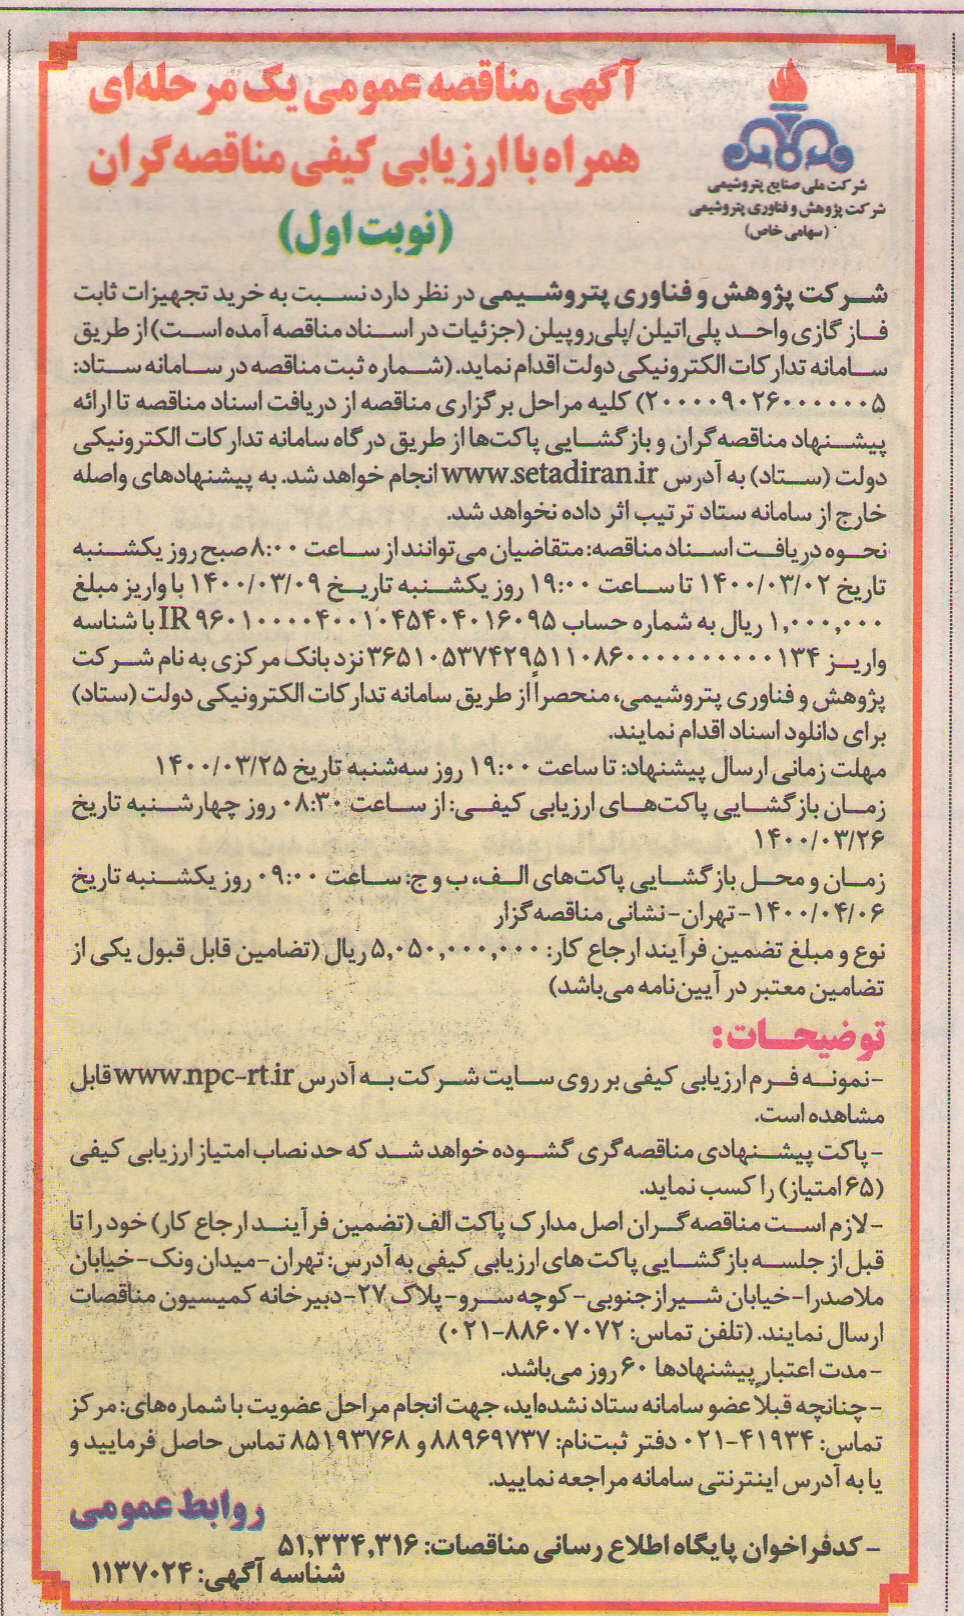 آگهی مناقصه عمومی یک مرحله‌ای
همراه با ارزیابی کیفی مناقصه‌گران
(نوبت اول)
شرکت ملی صنایع پتروشیمی
شرکت پژوهش و فناوری پتروشیمی
(سهامی خاص)
شرکت پژوهش و فناوری پتروشیمی در نظر دارد نسبت به خرید تجهیزات ثابت
فاز گازی واحد پلی‌اتیلن/پلی‌روپیلن (جزئیات در اسناد مناقصه آمده است) از طریق
سامانه تدارکات الکترونیکی دولت اقدام نماید. (شماره ثبت مناقصه در سامانه ستاد:
۲۰۰۰۰۹۰۲۶۰۰۰۰۰۰۵) کلیه مراحل برگزاری مناقصه از دریافت اسناد مناقصه تا ارائه
پیشنهاد مناقصه‌گران و بازگشایی پاکت‌ها از طریق درگاه سامانه تدارکات الکترونیکی
دولت (ستاد) به آدرس www.setadiran.ir انجام خواهد شد. به پیشنهادهای واصله
خارج از سامانه ستاد ترتیب اثر داده نخواهد شد.
نحوه دریافت اسناد مناقصه: متقاضیان می‌توانند از ساعت ۸:۰۰ صبح روز یکشنبه
تاریخ ۱۴۰۰/۰۳/۰۲ تا ساعت ۱۹:۰۰ روز یکشنبه تاریخ ۱۴۰۰/۰۳/۰۹ با واریز مبلغ
۱,۰۰۰,۰۰۰ ریال به شماره حساب IR ۹۶۰۱۰۰۰۰۴۰۰۱۰۴۵۴۰۴۰۱۶۰۹۵ با شناسه
واریز ۳۶۵۱۰۵۳۷۴۲۹۵۱۱۰۸۶۰۰۰۰۰۰۰۰۰۰۰۱۳۴ نزد بانک مرکزی به نام شرکت
پژوهش و فناوری پتروشیمی، منحصراً از طریق سامانه تدارکات الکترونیکی دولت (ستاد)
برای دانلود اسناد اقدام نمایند.
مهلت زمانی ارسال پیشنهاد: تا ساعت ۱۹:۰۰ روز سه‌شنبه تاریخ ۱۴۰۰/۰۳/۲۵
زمان بازگشایی پاکت‌های ارزیابی کیفی: از ساعت ۰۸:۳۰ روز چهارشنبه تاریخ
۱۴۰۰/۰۳/۲۶
زمان و محل بازگشایی پاکت‌های الف، ب و ج: ساعت ۰۹:۰۰ روز یکشنبه تاریخ
۱۴۰۰/۰۴/۰۶- تهران- نشانی مناقصه‌گزار
نوع و مبلغ تضمین فرآیند ارجاع کار: ۵,۰۵۰,۰۰۰,۰۰۰ ریال (تضامین قابل قبول یکی از
تضامین معتبر در آیین‌نامه می‌باشد)
توضیحات:
-نمونه فرم ارزیابی کیفی بر روی سایت شرکت به آدرس www.npc-rt.ir قابل
مشاهده است.
- پاکت پیشنهادی مناقصه‌گری گشوده خواهد شد که حد نصاب امتیاز ارزیابی کیفی
(۶۵ امتیاز) را کسب نماید.
-لازم است مناقصه‌گران اصل مدارک پاکت الف (تضمین فرآیند ارجاع کار) خود را تا
قبل از جلسه بازگشایی پاکت های ارزیابی کیفی به آدرس: تهران- میدان ونک- خیابان
ملاصدرا- خیابان شیراز جنوبی- کوچه سرو- پلاک ۲۷- دبیرخانه کمیسیون مناقصات
ارسال نمایند. (تلفن تماس: ۸۸۶۰۷۰۷۲-۰۲۱)
-مدت اعتبار پیشنهادها ۶۰ روز می‌باشد.
- چنانچه قبلاً عضو سامانه ستاد نشده‌اید، جهت انجام مراحل عضویت با شماره‌های: مرکز
تماس: ۴۱۹۳۴-۰۲۱ دفتر ثبت‌نام: ۸۸۹۶۹۷۳۷ و ۸۵۱۹۳۷۶۸ تماس حاصل فرمایید و
یا به آدرس اینترنتی سامانه مراجعه نمایید.
روابط عمومی
- کدفراخوان پایگاه اطلاع رسانی مناقصات: ۵۱,۳۳۴,۳۱۶
شناسه آگهی: ۱۱۳۷۰۲۴